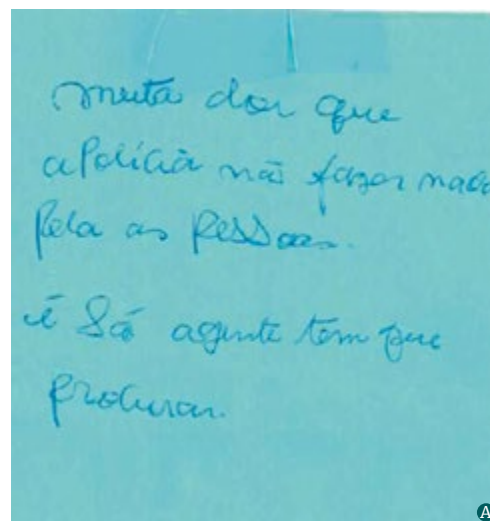 muita dor que
a Polícia não fazer nada
Pela as Pessoas.
é Só agente tem que
procurar.
A